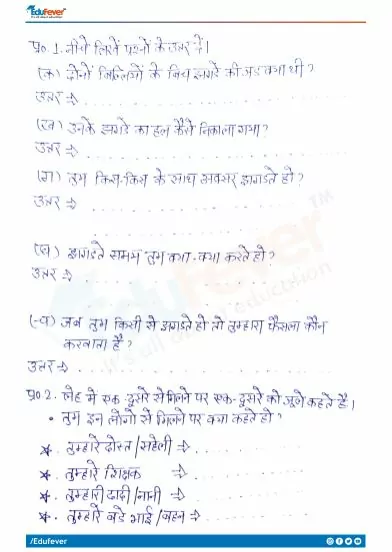 EduFever
It's all about education
प्र०.1. नीचे लिखें प्रश्नों के उत्तर दें।
(क) दोनों बिल्लियों के बिच झगडे की जड क्या थी?
उत्तर ⇒ . . . . . . . . . . . . . . . . . . . .
(ख) उनके झगडे का हल कैसे निकाला गया?
उत्तर ⇒ . . . . . . . . . . . . . . . . . . . .
(ग) तुम किस-किस के साथ अक्सर झगडते हो?
उत्तर ⇒ . . . . . . . . . . . . . . . . . . . .
(घ) झगडते समय तुम क्या-क्या करते हो?
उत्तर ⇒ . . . . . . . . . . . . . . . . . . . .
(च) जब तुम किसी से झगडते हो तो तुम्हारा फैसला कौन
करवाता है?
उत्तर ⇒ . . . . . . . . . . . . . . . . . . . .
प्र०.2. लेह में एक-दुसरे से मिलने पर एक-दुसरे को जूले कहते है।
• तुम इन लोगो से मिलने पर क्या कहते हो?
★. तुम्हारे दोस्त/सहेली ⇒ . . . . . . . .
★. तुम्हारे शिक्षक ⇒ . . . . . . . .
★. तुम्हारी दादी/नानी ⇒ . . . . . . . .
★. तुम्हारे बडे भाई/बहन ⇒ . . . . . . . .
EduFever
It's all about education
TM
/Edufever